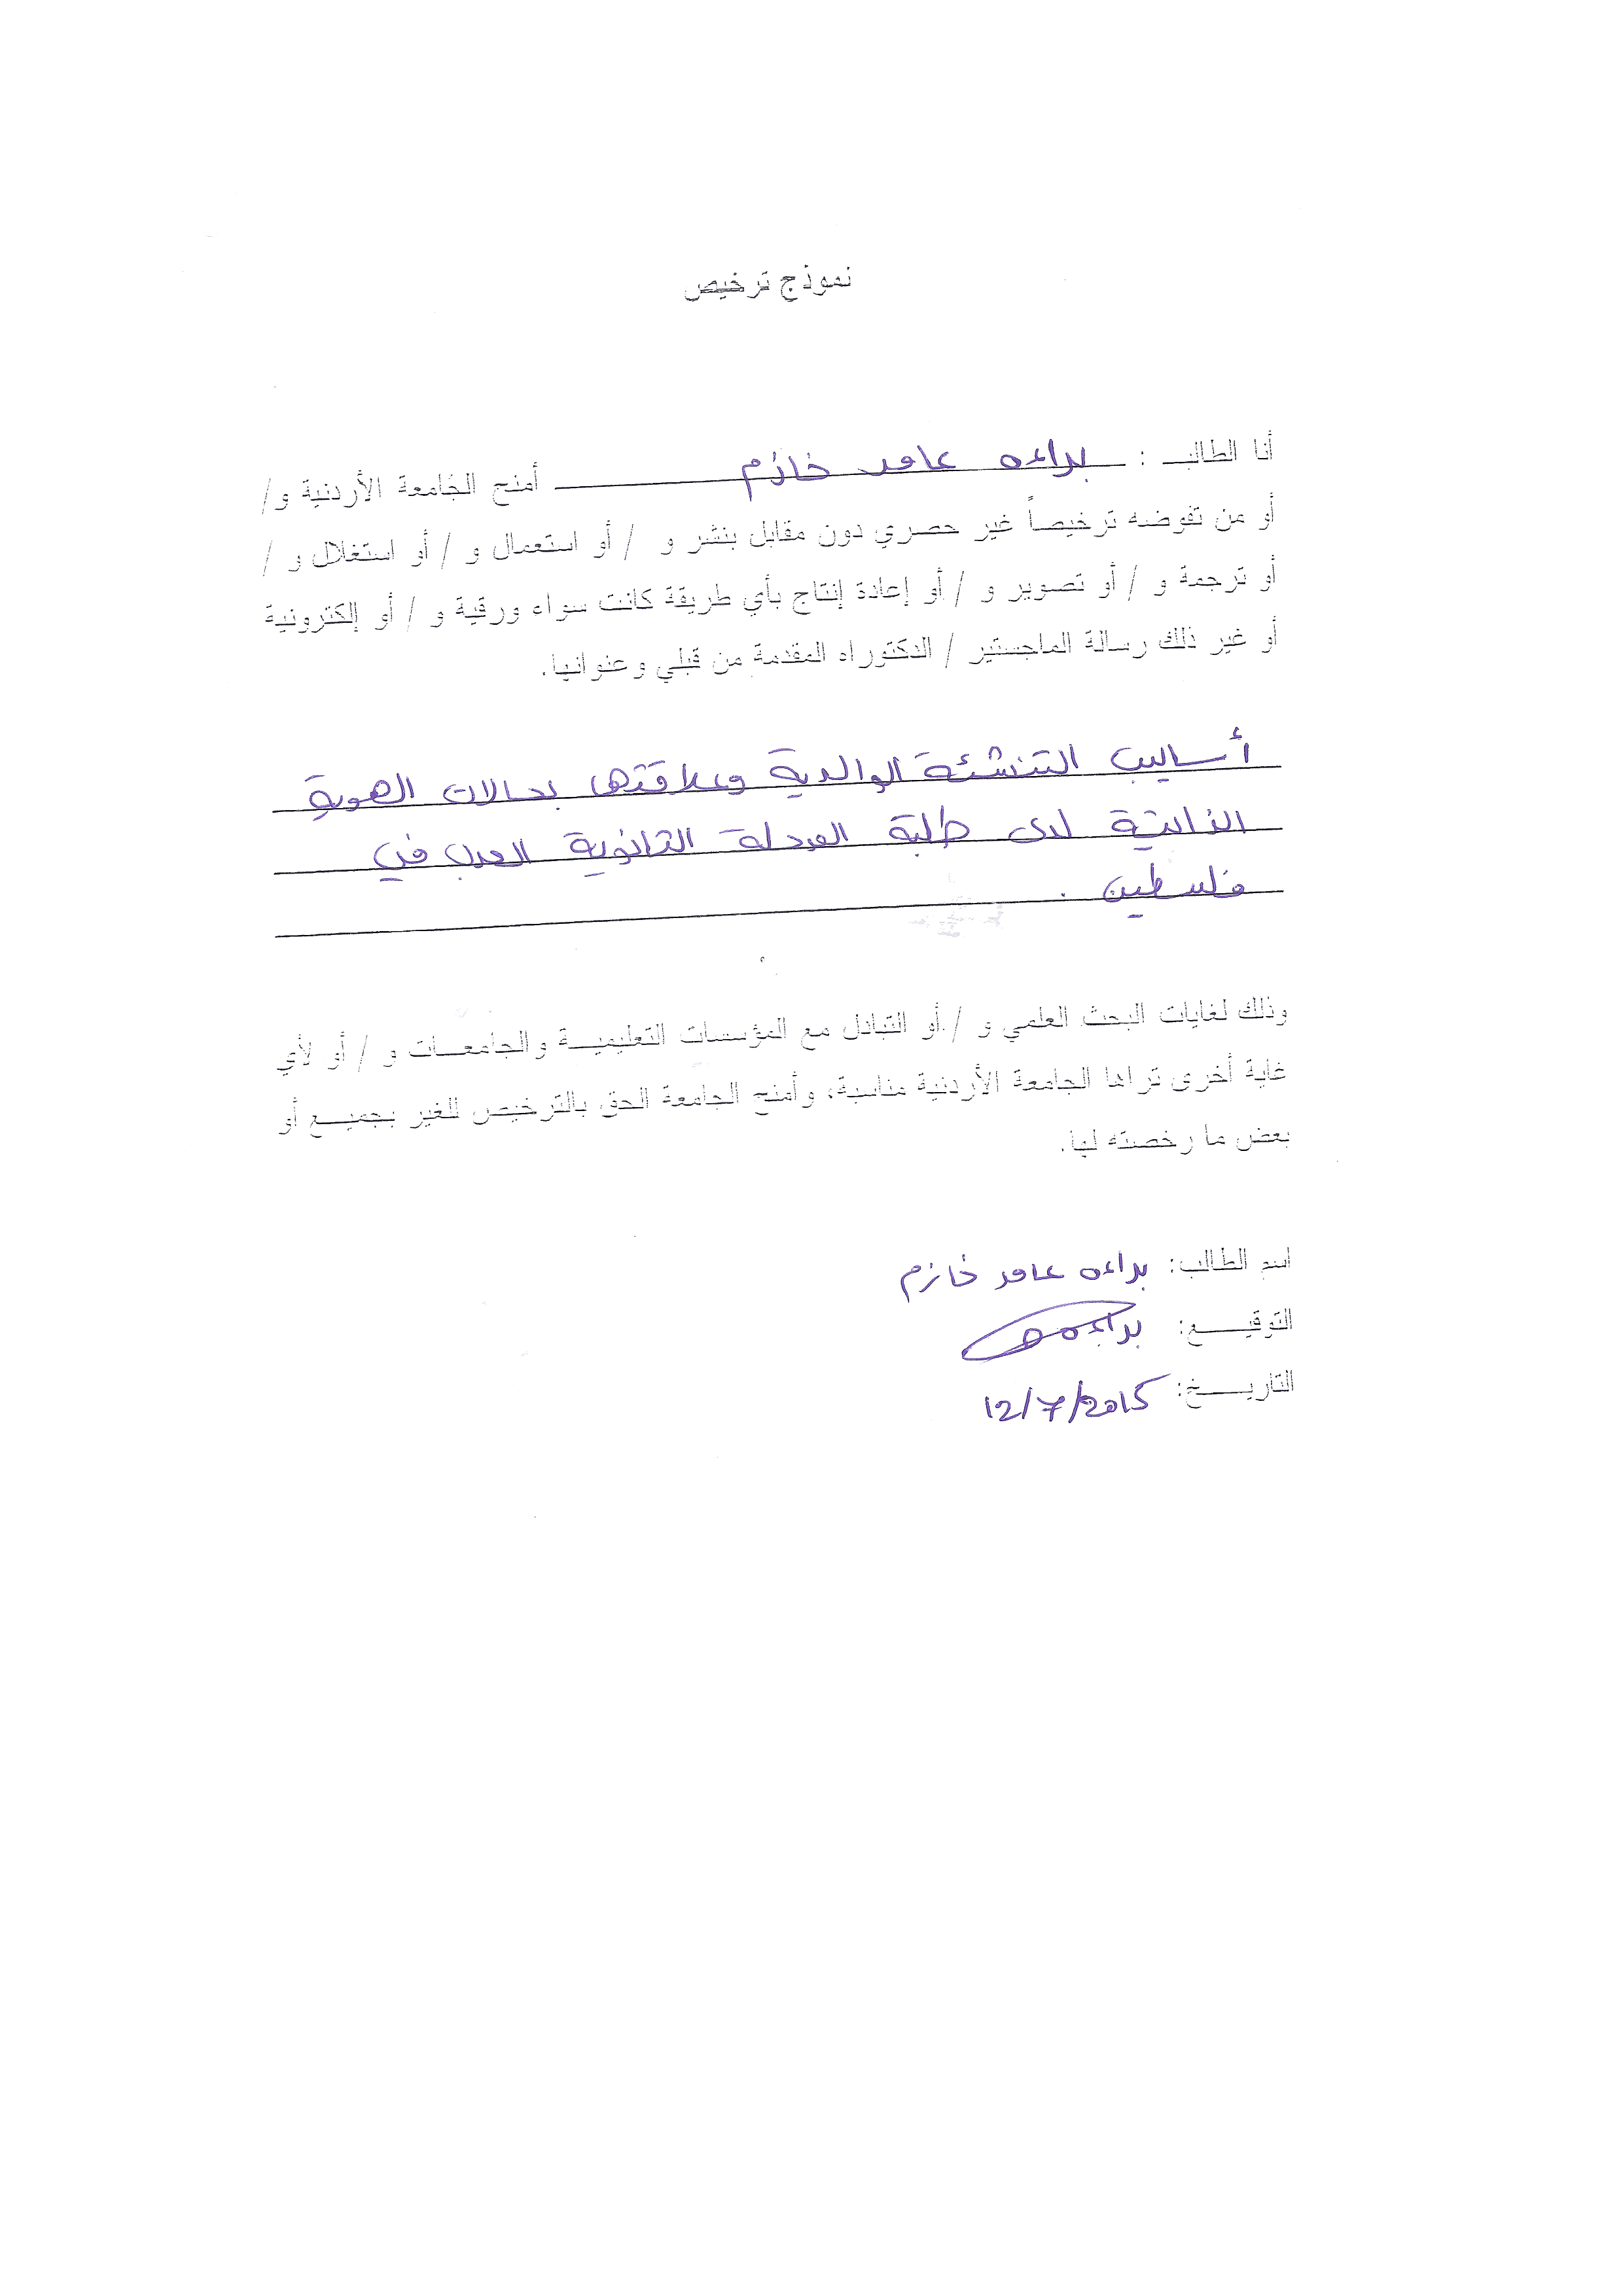 نموذج ترخيص
أنا الطالب : براءه عامر خازم أمنح الجامعة الأردنية و/
أو من تفوضه ترخيصاً غير حصري دون مقابل بنشر و / أو استعمال و / أو استغلال و /
أو ترجمة و / أو تصوير و / أو إعادة إنتاج بأي طريقة كانت سواء ورقية و / أو إلكترونية
أو غير ذلك رسالة الماجستير / الدكتوراه المقدمة من قبلي وعنوانها.
أساليب التنشئة الوالدية وعلاقتها بحالات الهوية
الذاتية لدى طلبة المرحلة الثانوية العرب في
فلسطين .
وذلك لغايات البحث العلمي و / أو التبادل مع المؤسسات التعليمية والجامعات و / أو لأي
غاية أخرى تراها الجامعة الأردنية مناسبة، وأمنح الجامعة الحق بالترخيص للغير بجميع أو
بعض ما رخصته لها.
اسم الطالب: براءه عامر خازم
التوقيع: براءه
التاريخ: 12/7/2015